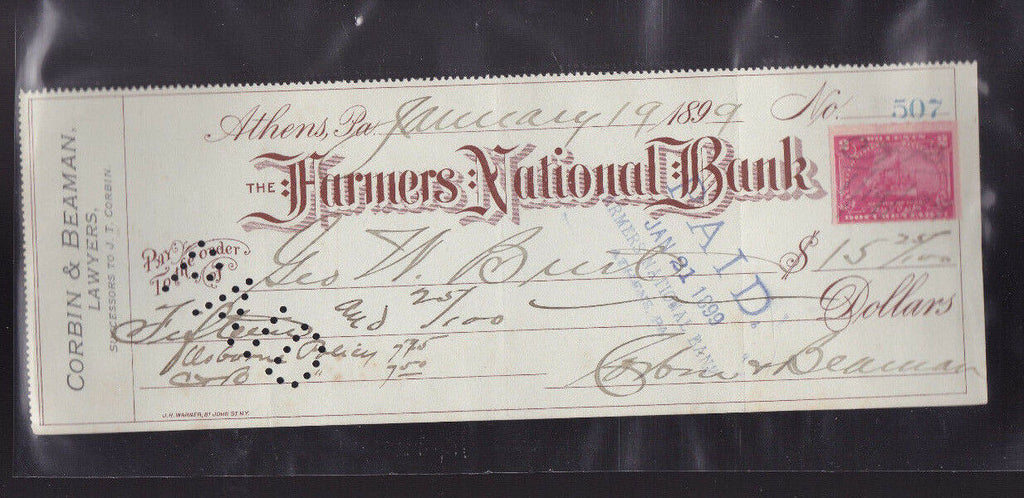 CORBIN & BEAMAN,
LAWYERS,
SUCCESSORS TO J. T. CORBIN.
Athens, Pa. January 19 1899 No. 507
THE Farmers National Bank
Pay to the order of Geo W. $ 15 25/100
Fifteen and 25/100 Dollars
Osborne Policy
C & B
Corbin & Beaman
PAID
FARMERS NATIONAL BANK
JAN 21 1899
ATHENS, PA.
J.H. WARNER, 81 JOHN ST. N.Y.